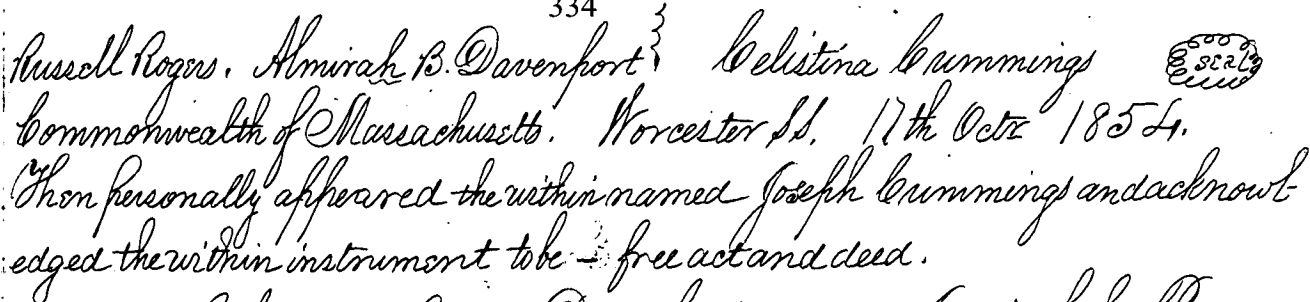 334
Russell Rogers. Almirah B. Davenport } Celistina Cummings SEAL
Commonwealth of Massachusetts. Worcester SS. 17th Octr 1854.
Then personally appeared the within named Joseph Cummings and acknowl-
edged the within instrument to be – free act and deed.